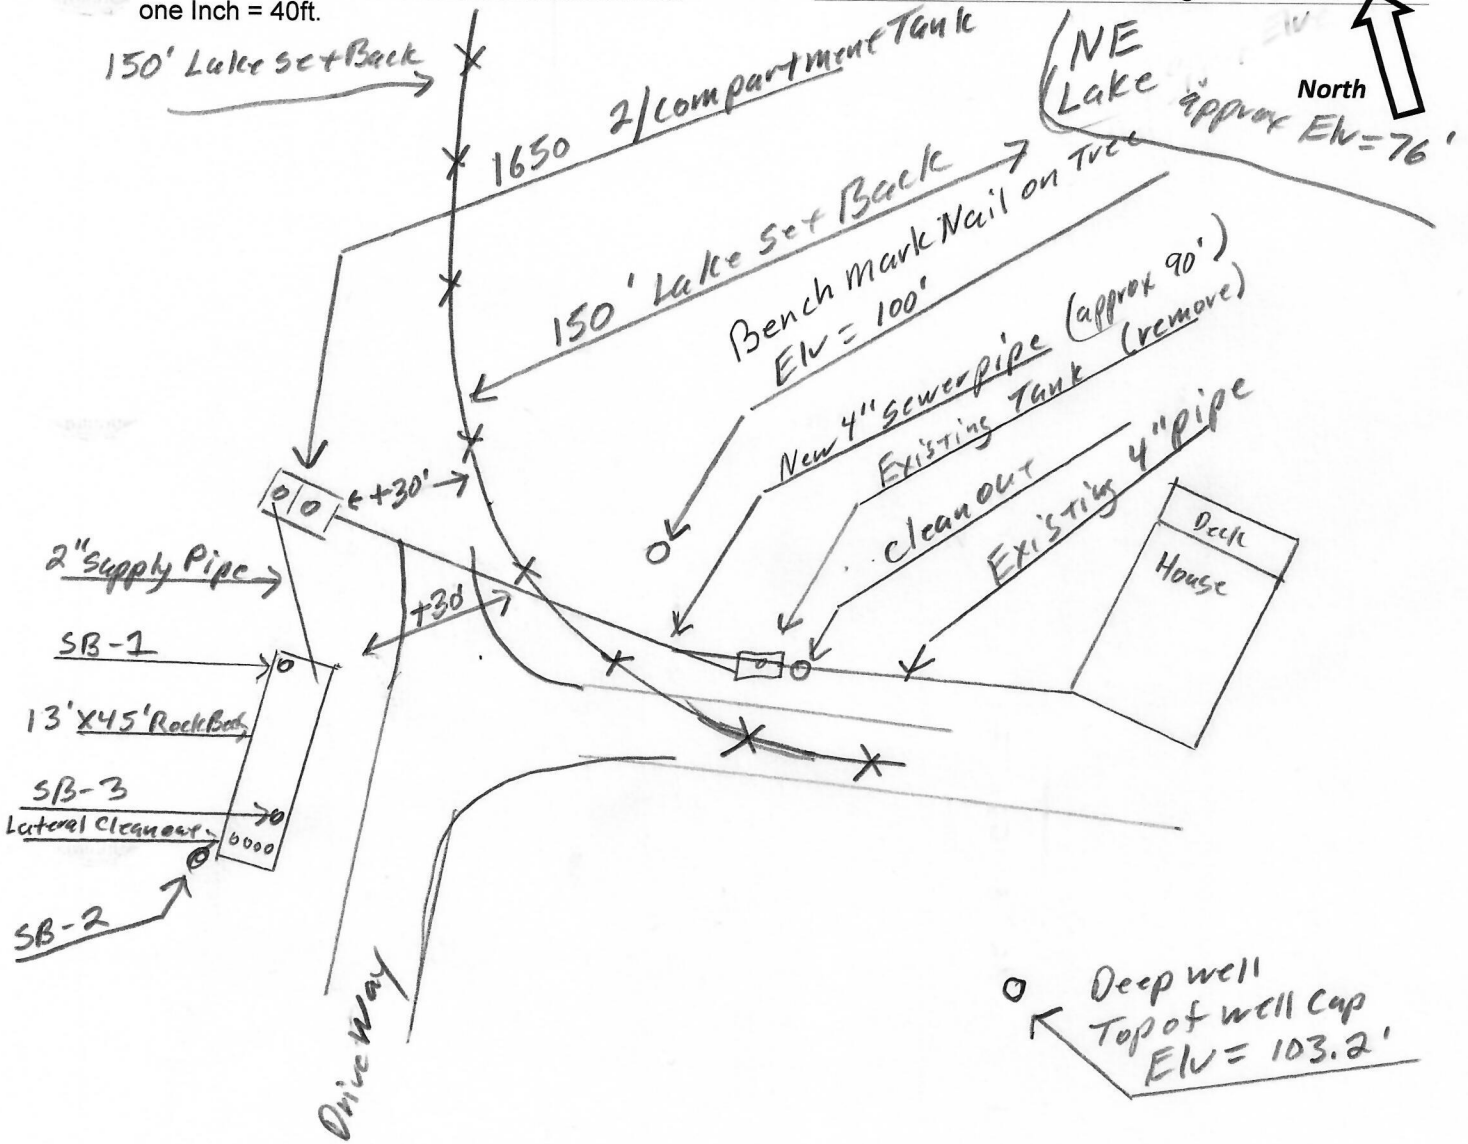 one Inch = 40ft.
150' Lake set Back
1650 2/compartment Tank
NE
Lake
approx Elv = 76'
North
150' Lake set Back
Bench mark Nail on Tree
Elv = 100'
New 4" sewer pipe (approx 90')
Existing Tank (remove)
cleanout
Existing 4" pipe
+30'
Deck
House
2" Supply Pipe
+30'
SB-1
13' X 45' Rock Bed
SB-3
Lateral Cleanout
SB-2
Drive Way
Deep well
Top of well Cap
Elv = 103.2'